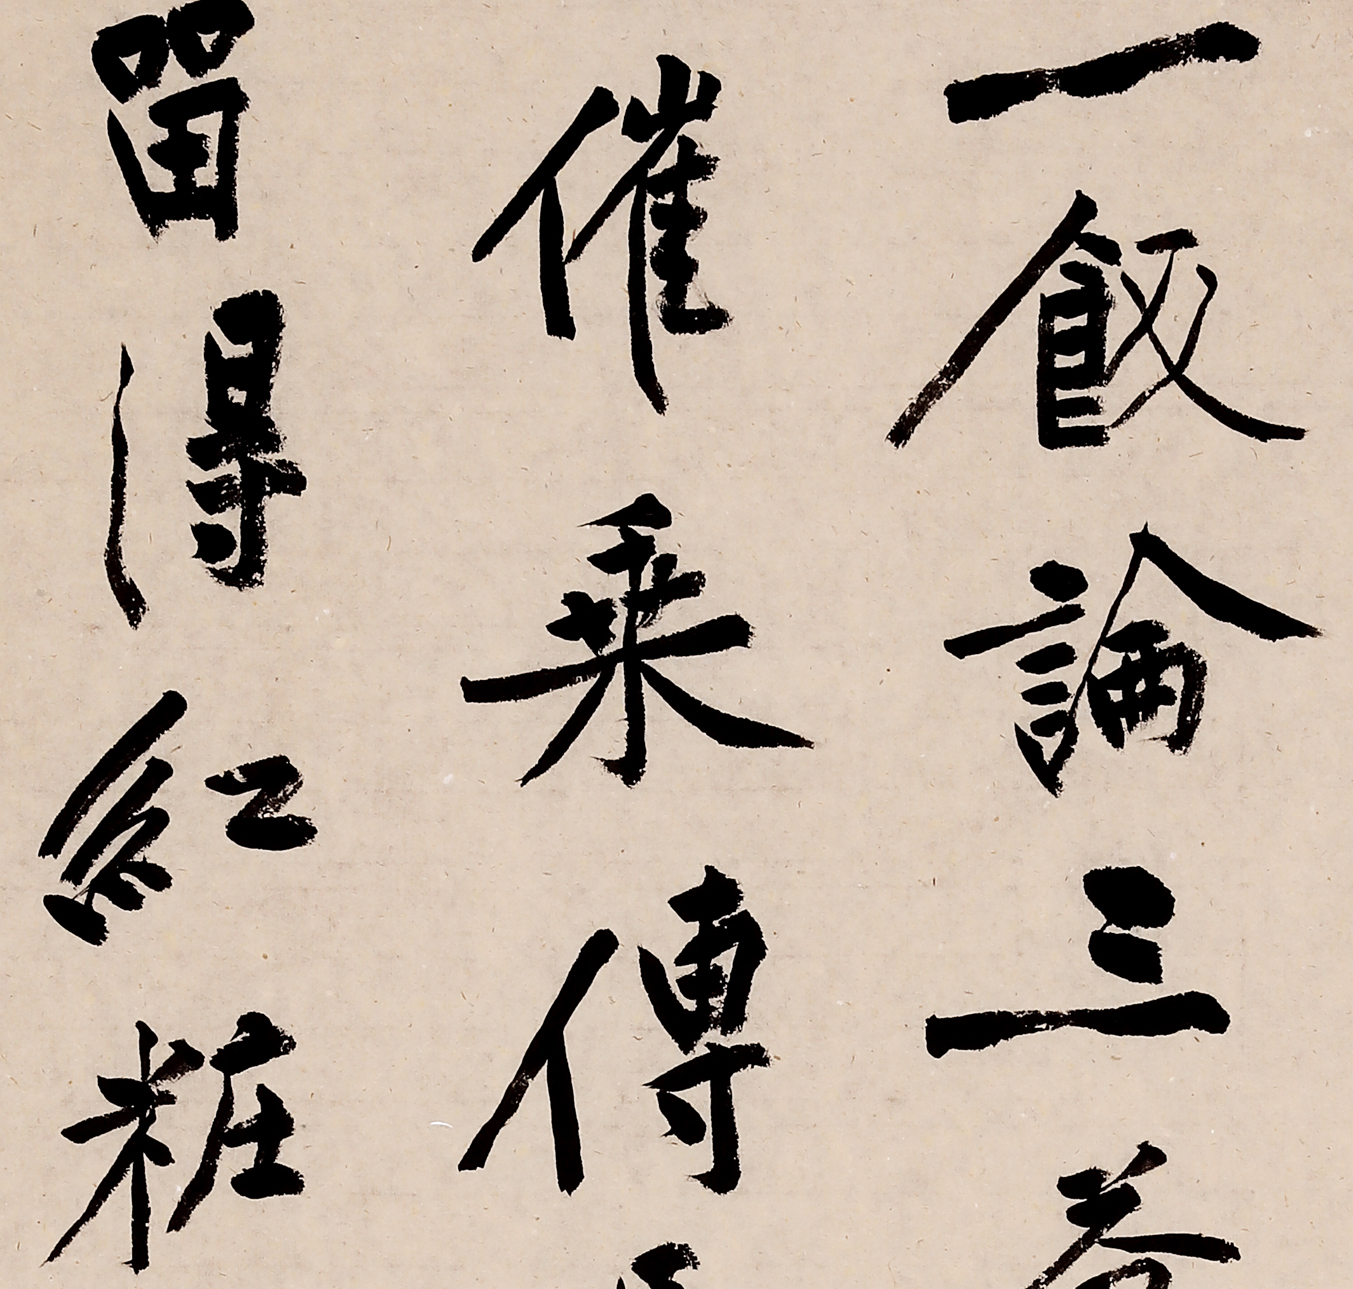 一飯論三
催乘傳
留得紅粧